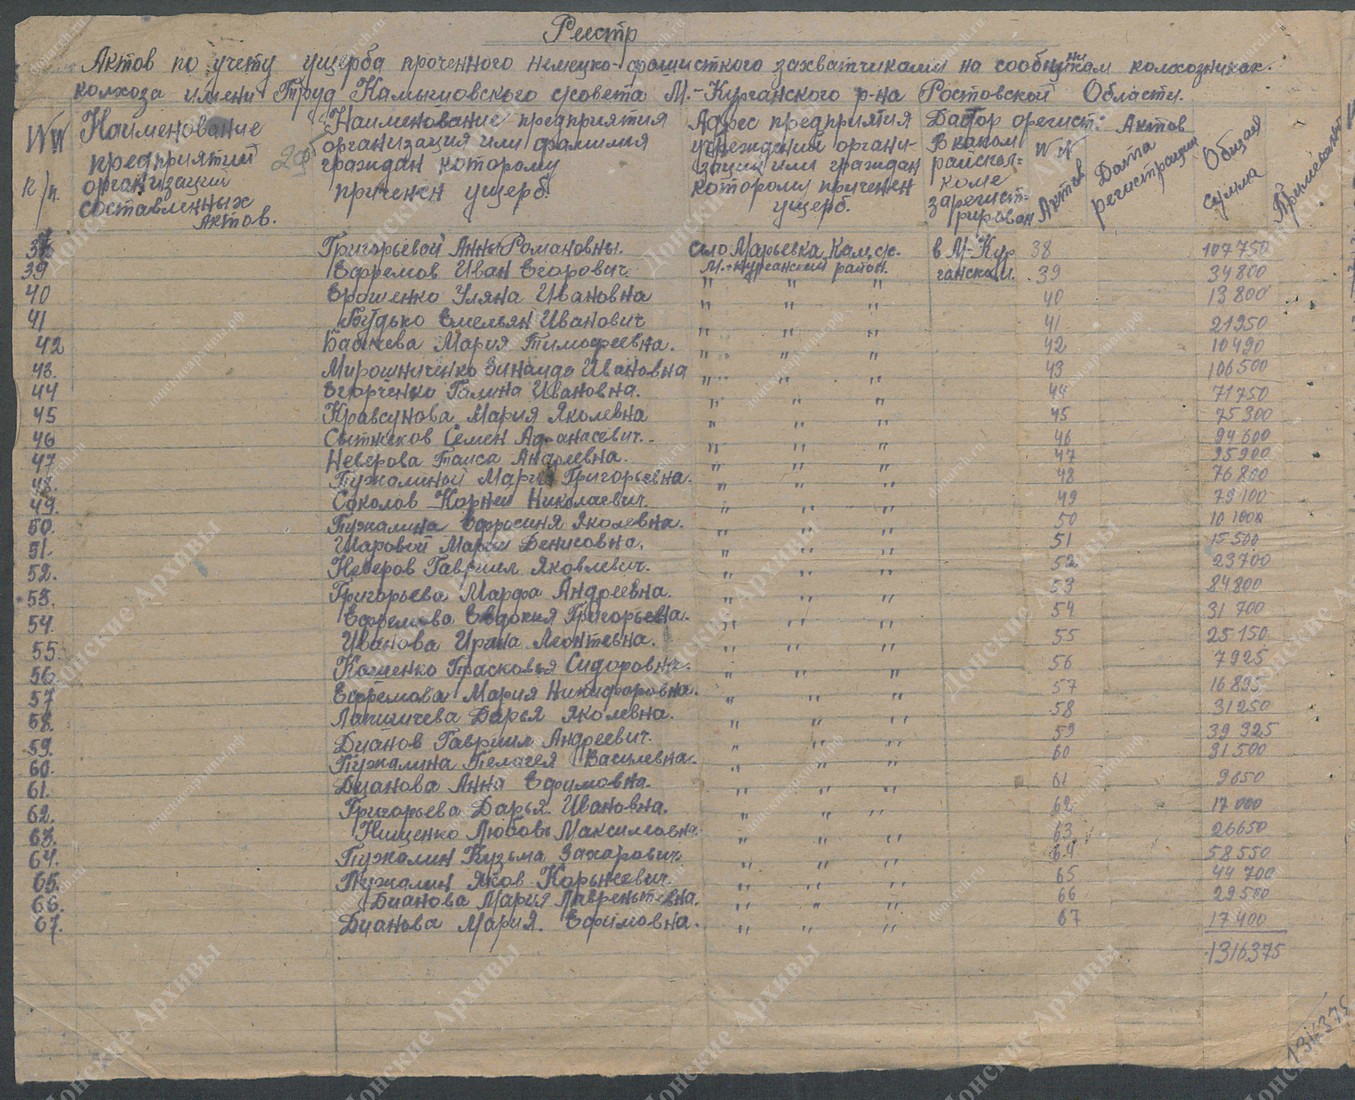 Реестр
Актов по учету ущерба проченного немецко-фашисткого захватчиками на сообнужкам колхозникак.
колхоза имени Труд Камышовского с/совета М.-Курганского р-на Ростовской Области.
NN п/п. Наименование предприятий организаций составленных Актов. 29 Наименование предприятия организация или фамилия граждан которому причинен ущерб. Адрес предприятия учреждения организации или граждан которому причинен ущерб. В каком райиспол-коме зарегист-рирован NN Актов Дата регистрации Актов Общая сумма Примечание
38 Григорьевой Анны Романовны. село Марьевка Кам.с.с. в М-Кур 38 107750
39 Ефремов Иван Егорович М.-Курганский район. ганском. 39 34800
40 Ерошенко Уляна Ивановна " " " 40 13800
41 Будько Емельян Иванович " " " 41 21950
42 Мария Тимофеевна. " " " 42 10490
43. Мирошниченко Зинаида Ивановна " " " 43 106500
44 Егорченко Галина Ивановна. " " " 44 71750
45 Мария Яколевна " " " 45 75300
46 Сытников Семен Афанасевич. " " " 46 94600
47 Неверова Таиса Андреевна. " " " 47 95900
48. Пужалиной Марии Григорьевна. " " " 48 76800
49. Соколов Корней Николаевич. " " " 49 79100
50. Пужалина Ефросиня Яколевна. " " " 50 10 1000
51. Шаровой Марии Денисовна. " " " 51 15500
52. Неверов Гавриил Яковлевич. " " " 52 23700
53. Григорьева Марфа Андреевна. " " " 53 84800
54. Ефремова Евдокия Григорьевна. " " " 54 31 700
55. Иванова Ирина Леонтевна. " " " 55 25150
56. Кащенко Прасковья Сидоровна. " " " 56 7925
57 Ефремова Мария Никифоровна. " " " 57 16895
58. Лапшичева Дарья Яколевна. " " " 58 31250
59. Дианов Гавриил Андреевич. " " " 59 39 325
60. Пужалина Пелагея Васильевна. " " " 60 31500
61. Дианова Анна Ефимовна. " " " 61 9650
62. Григорьева Дарья Ивановна. " " " 62 17000
63. Нищенко Любовь Максимовна. " " " 63 26650
64. Пужалин Кузьма Захарович " " " 64 58550
65. Пужалин Яков Корнеевич. " " " 65 44 700
66. Дианова Мария Лаврентьевна. " " " 66 29500
67. Дианова Мария. Ефимовна. " " " 67 17400
1316375
1316375